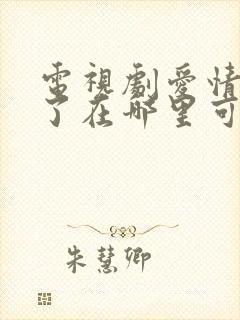 電視劇愛情
了在哪里可
朱慧卿